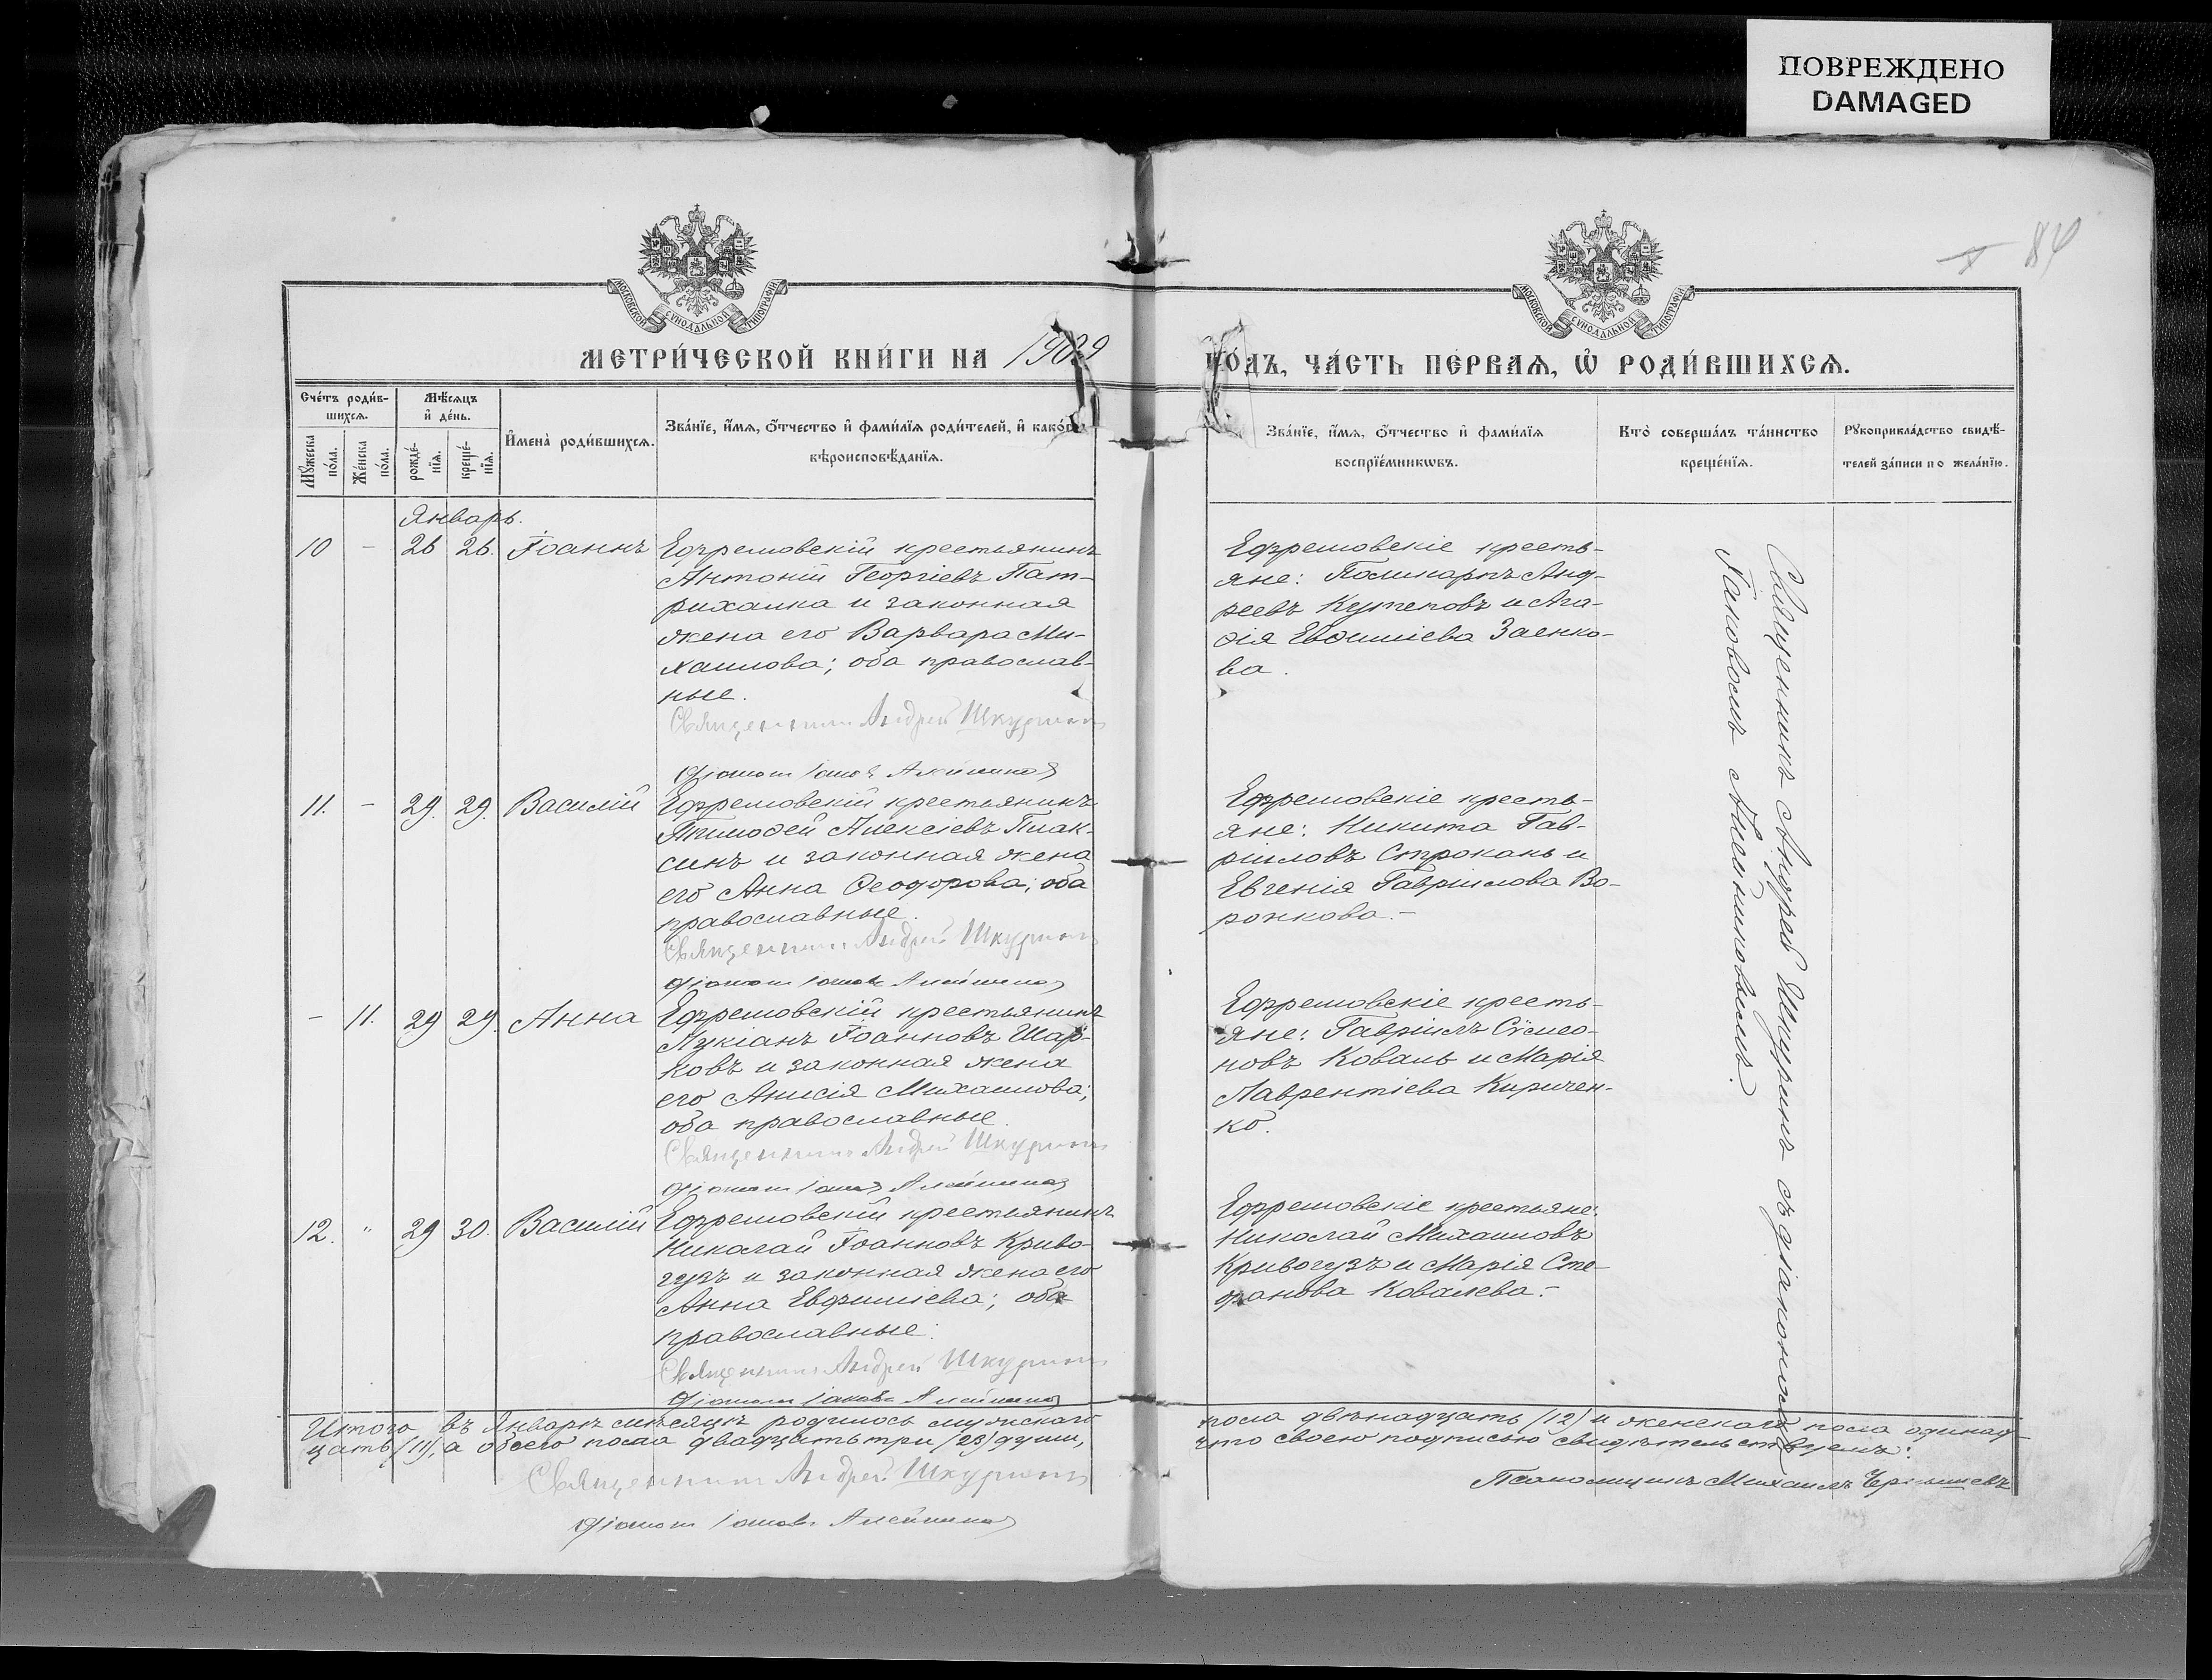 ПОВРЕЖДЕНО
DAMAGED
84
МОСКОВСКОЙ СѴНОДАЛЬНОЙ ТИПОГРАФІИ
МОСКОВСКОЙ СѴНОДАЛЬНОЙ ТИПОГРАФІИ
МЕТРИ́ЧЕСКОЙ КНИ́ГИ НА 1909
ГО́ДЪ, ЧА́СТЬ ПЕ́РВАѦ, Ѽ РОДИ́ВШИХСѦ.
Сче́тъ роди́в-
шихсѧ.
Мѣ́сѧцъ
и҆ де́нь.
Мꙋ́жеска
по́ла.
Же́нска
по́ла.
рожде́-
нїѧ.
креще́-
нїѧ.
И҆мена̀ роди́вшихсѧ.
Зва́нїе, и҆́мѧ, ѻ҆́тчество и҆ фами́лїѧ роди́телей, и҆ како́гѡ
вѣроисповѣ́данїѧ.
Зва́нїе, и҆́мѧ, ѻ҆́тчество и҆ фами́лїѧ
воспрїе́мникѡвъ.
Кто̀ соверша́лъ та́инство
креще́нїѧ.
Рꙋкоприкла́дство свидѣ́-
телей за́писи по жела́нїю.
Январь.
10 - 26 26. Іоаннъ Ефремовскій крестьянинъ
Антоній Георгіевъ Пат-
рихалка и законная
жена его Варвара Ми-
хаилова; оба православ-
ные.
Священникъ Андрей Шкуринъ
Діаконъ Іаковъ Алейников
Ефремовскіе кресть-
яне: Поликарпъ Анд-
реевъ Кутеповъ и Ага-
ѳія Евѳиміева Заенко-
ва.
11. - 29. 29. Василій Ефремовскій крестьянинъ
Тимоѳей Алексіевъ Плак-
синъ и законная жена
его Анна Ѳеодорова; оба
православные.
Священникъ Андрей Шкуринъ
Діаконъ Іаковъ Алейников
Ефремовскіе кресть-
яне: Никита Гав-
ріиловъ Строкань и
Евгенія Гавріилова Во-
ронкова.-
- 11. 29 29. Анна Ефремовскій крестьянинъ
Лукіанъ Іоанновъ Шар-
ковъ и законная жена
его Анисія Михаилова;
оба православные.
Священникъ Андрей Шкуринъ
Діаконъ Іаковъ Алейников
Ефремовскіе кресть-
яне: Гавріилъ Сѵмео-
новъ Коваль и Марія
Лаврентіева Киричен-
ко.
12. " 29 30. Василій Ефремовскій крестьянинъ
Николай Іоанновъ Криво-
гузъ и законная жена его
Анна Евфиміева; оба
православные.
Священникъ Андрей Шкуринъ
Діаконъ Іаковъ Алейников
Ефремовскіе крестьяне:
Николай Михаиловъ
Кривогузъ и Марія Сте-
фанова Ковалева.-
Священникъ Андрей Шкуринъ съ діакономъ
Іаковомъ Алейниковымъ.
Итого въ Январѣ мѣсяцѣ родилось мужскаго
пола двѣнадцать (12) и женскаго пола одинад-
цать (11), а обоего пола двадцать три (23) души,
что своею подписью свидѣтельствуемъ:
Священникъ Андрей Шкуринъ
Діаконъ Іаковъ Алейников
Псаломщикъ Михаилъ Чернышевъ